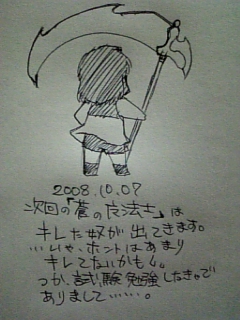 2008.10.07
次回の「蒼の魔法士」は
キレた奴が出てきます。
…いや、ホントはあまり
キレてないかも〆。
つか、試験勉強しなきゃで
ありまして……。